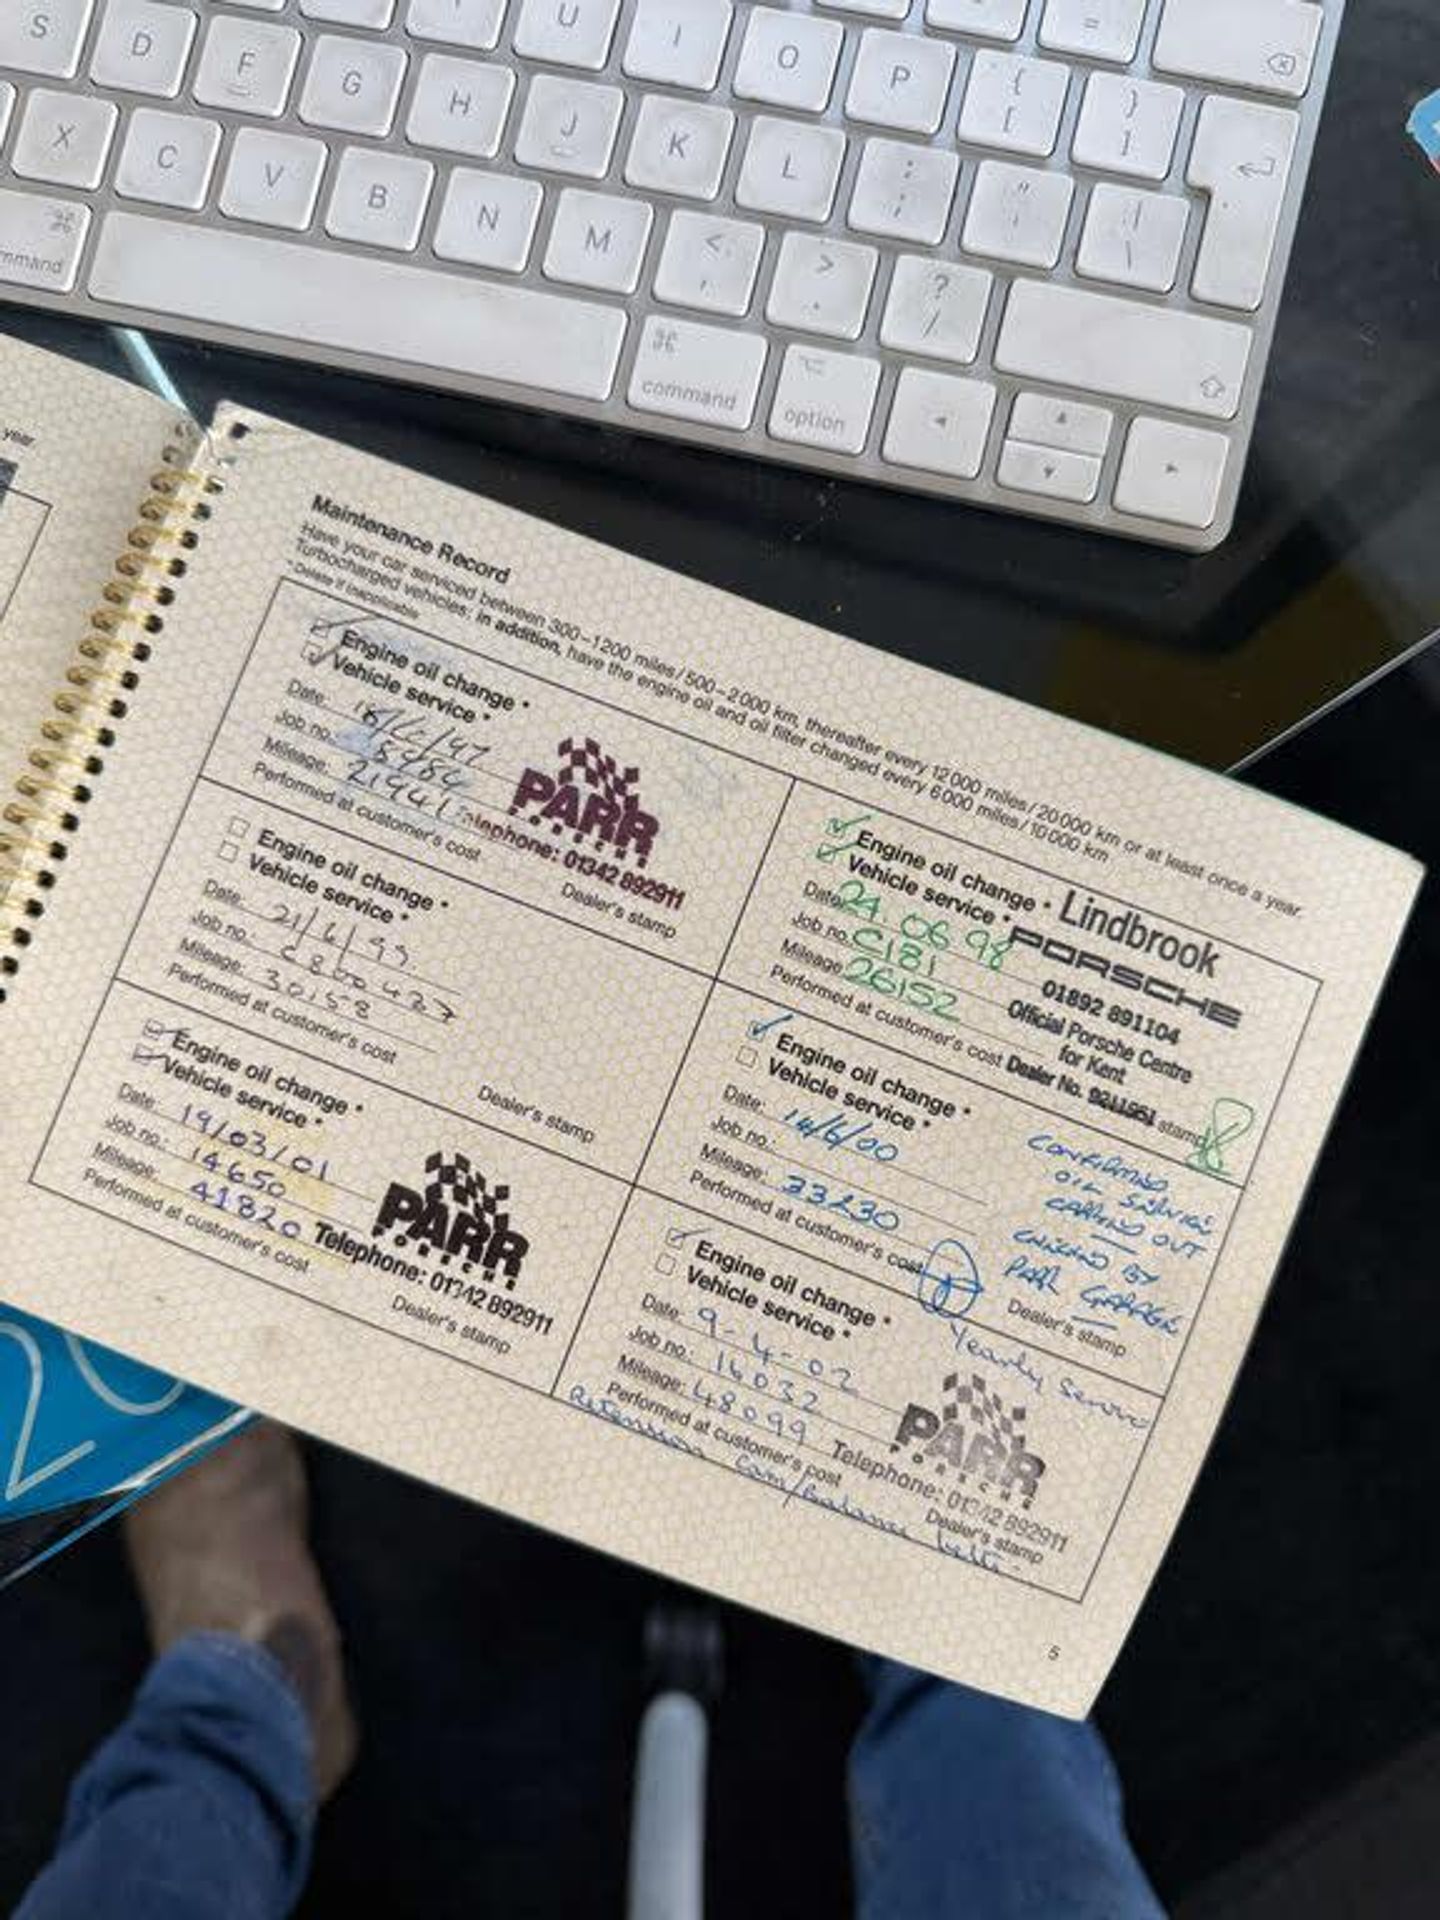 S D F G H J K L U I O P { [ } ] =
X C V B N M < , > . ? / : ; " ' | \
command
command
option
year
Maintenance Record
Have your car serviced between 300–1200 miles/500–2000 km, thereafter every 12000 miles/20000 km or at least once a year.
Turbocharged vehicles: in addition, have the engine oil and oil filter changed every 6000 miles/10000 km
* Delete if inapplicable
Engine oil change *
Vehicle service *
Date:
Job no.: 8484
Mileage: 21941
Performed at customer's cost
PARR
PORSCHE
Telephone: 01342 892911
Dealer's stamp
Engine oil change *
Vehicle service *
Date: 24.06 98
Job no. C181
Mileage 26152
Performed at customer's cost
Lindbrook
PORSCHE
01892 891104
Official Porsche Centre
for Kent
Dealer No. 9211551
stamp
Engine oil change *
Vehicle service *
Date: 21/6/99.
Job no.: C800427
Mileage: 30158
Performed at customer's cost
Dealer's stamp
Engine oil change *
Vehicle service *
Date: 14/6/00
Job no.:
Mileage: 33230
Performed at customer's cost
CONFIRMED
OIL SERVICE
CARRIED OUT
BY
PARR GARAGE
Dealer's stamp
Engine oil change *
Vehicle service *
Date: 19/03/01
Job no.: 14650
Mileage: 41820
Performed at customer's cost
PARR
PORSCHE
Telephone: 01342 892911
Dealer's stamp
Yearly Service
Engine oil change *
Vehicle service *
Date: 9-4-02
Job no.: 16032
Mileage: 48099
Performed at customer's cost
PARR
PORSCHE
Telephone: 01342 892911
Dealer's stamp
Retension Cam/Balance belts.
5